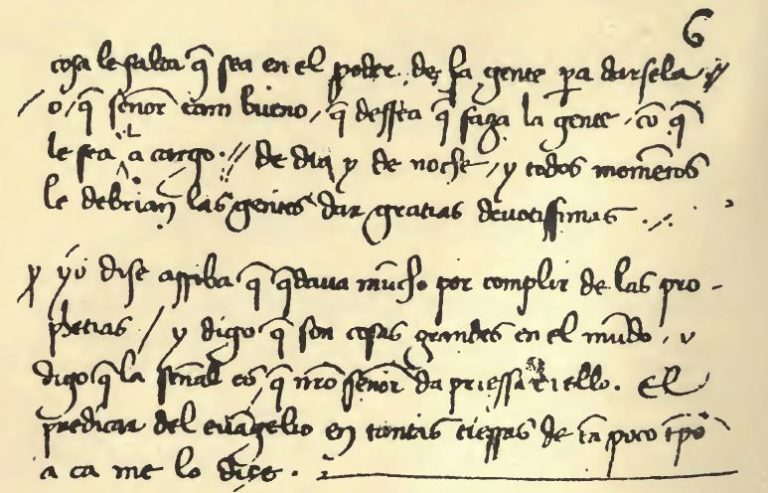 6
cosa le falta q̄ sea en el poder de la gente pa darsela //
/ o q̄ señor tam bueno, q̄ dessea q̄ faga la gente, cō q̄
le sea el a cargo // de dia y de noche, y todos momētos
le debrian las gentes dar gratias devotissimas ./.
yo dise arriba q̄ q̄dava mucho por complir de las pro-
phetias / y digo q̄ son cosas grandes en el mūdo, y
digo q̄ la señal es q̄ nr̄o señor da priessa en ello. El
predicar del evāgelio en tantas tierras de tā poco tp̄o
a ca me lo dise.